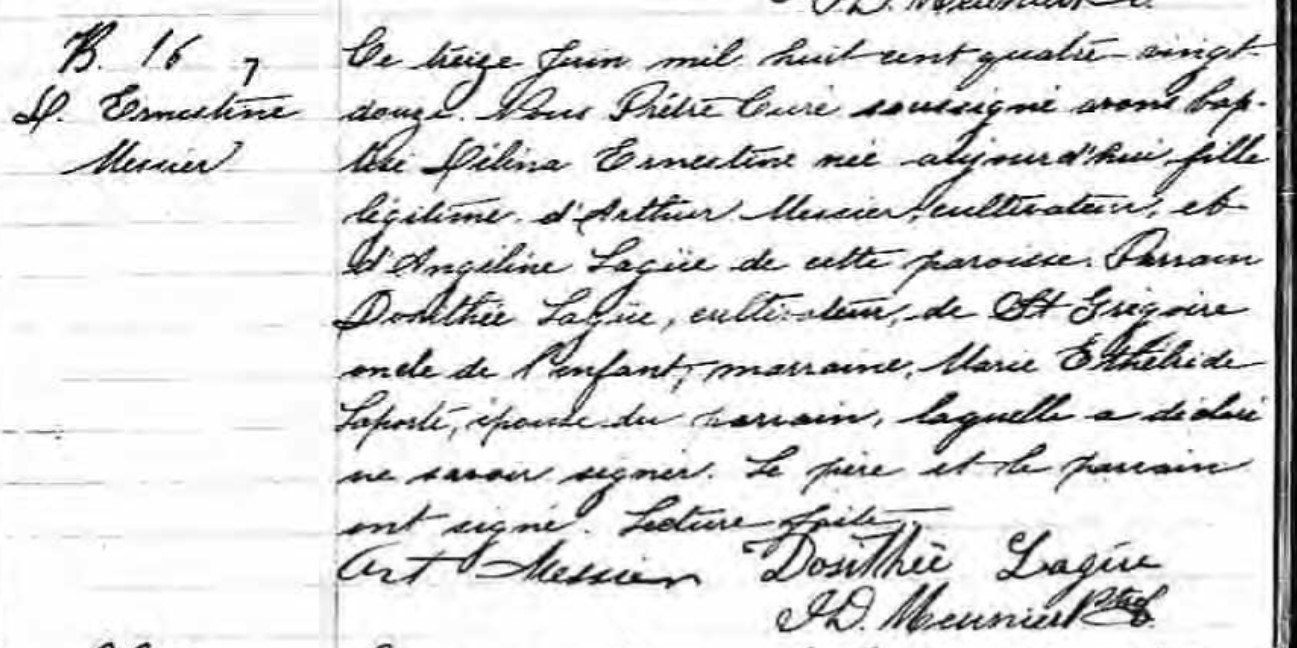 J.D. Meunier
B. 16
D. Ernestine
Messier
Ce treize Juin mil huit cent quatre-vingt-
douze. Nous Prêtre Curé soussigné avons bap-
tisé Délina Ernestine née aujourd'hui fille
légitime d'Arthur Messier, cultivateur, et
d'Angéline Lagüe de cette paroisse. Parrain
Dosithée Lagüe, cultivateur, de St Grégoire
oncle de l'enfant, marraine, Marie
Laporte, épouse du parrain, laquelle a déclaré
ne savoir signer. Le père et le parrain
ont signé. Lecture faite
Art Messier Dosithée Lagüe
J.D. Meunier Ptre